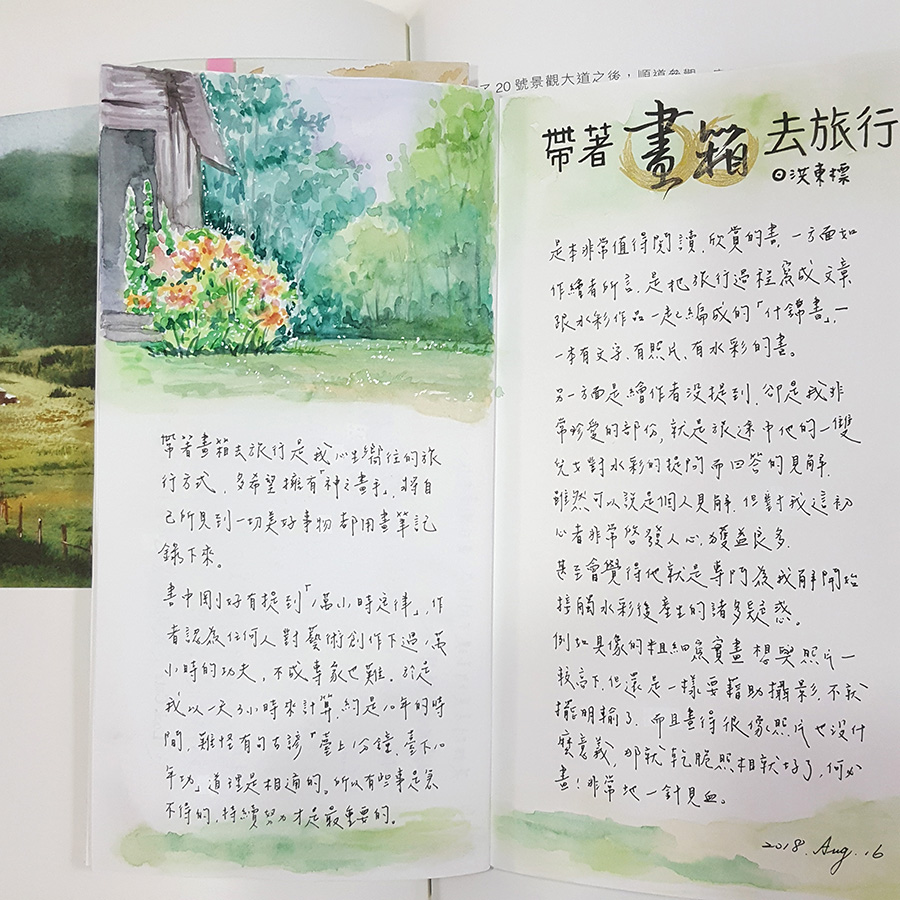 20號景觀大道之後，順道參觀
帶著畫箱去旅行
洪東標
是本非常值得閱讀、欣賞的書，一方面如
作繪者所言，是把旅行過程寫成文章
跟水彩作品一起編成的「什錦書」，一
一本有文字、有照片、有水彩的書。
另一方面是繪作者沒提到，卻是我非
常珍愛的部份，就是旅途中他的一雙
兒女對水彩的提問而回答的見解，
雖然可以說是個人見解，但對我這初
心者非常啓發人心，獲益良多，
甚至會覺得他就是專門為我解開始
接觸水彩後產生的諸多疑惑。
例如具像的粗細寫實畫想與照片一
較高下，但還是一樣要藉助攝影，不就
擺明輸了，而且畫得很像照片也沒什
麼意義，那就乾脆照相就好了，何必
畫！非常地一針見血。
2018. Aug. 16
帶著畫箱去旅行是我心生嚮往的旅
行方式，多希望擁有「神之畫手」，將自
己所見到一切美好事物都用畫筆記
錄下來。
書中剛好有提到「1萬小時定律」，作
者認為任何人對藝術創作下過1萬
小時的功夫，不成專家也難，於是
我以一天3小時來計算，約是10年的時
間，難怪有句古諺「臺上1分鐘，臺下10
年功」道理是相通的。所以有些事是急
不得的，持續努力才是最重要的。